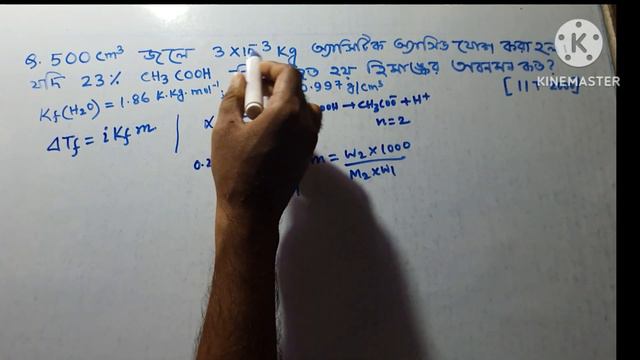 Q. 500 cm³ জলে 3 × 10⁻³ kg অ্যাসিটিক অ্যাসিড যোগ করা হল
যদি 23% CH3COOH হয় হিমাঙ্কের অবনমন কত?
Kf(H2O) = 1.86 K.Kg.mol⁻¹, 0.997 g/cm³
ΔTf = i Kf m
α
OOH → CH3COO⁻ + H⁺
n = 2
0.2
m = W2 × 1000 / M2 × W1
KINEMASTER